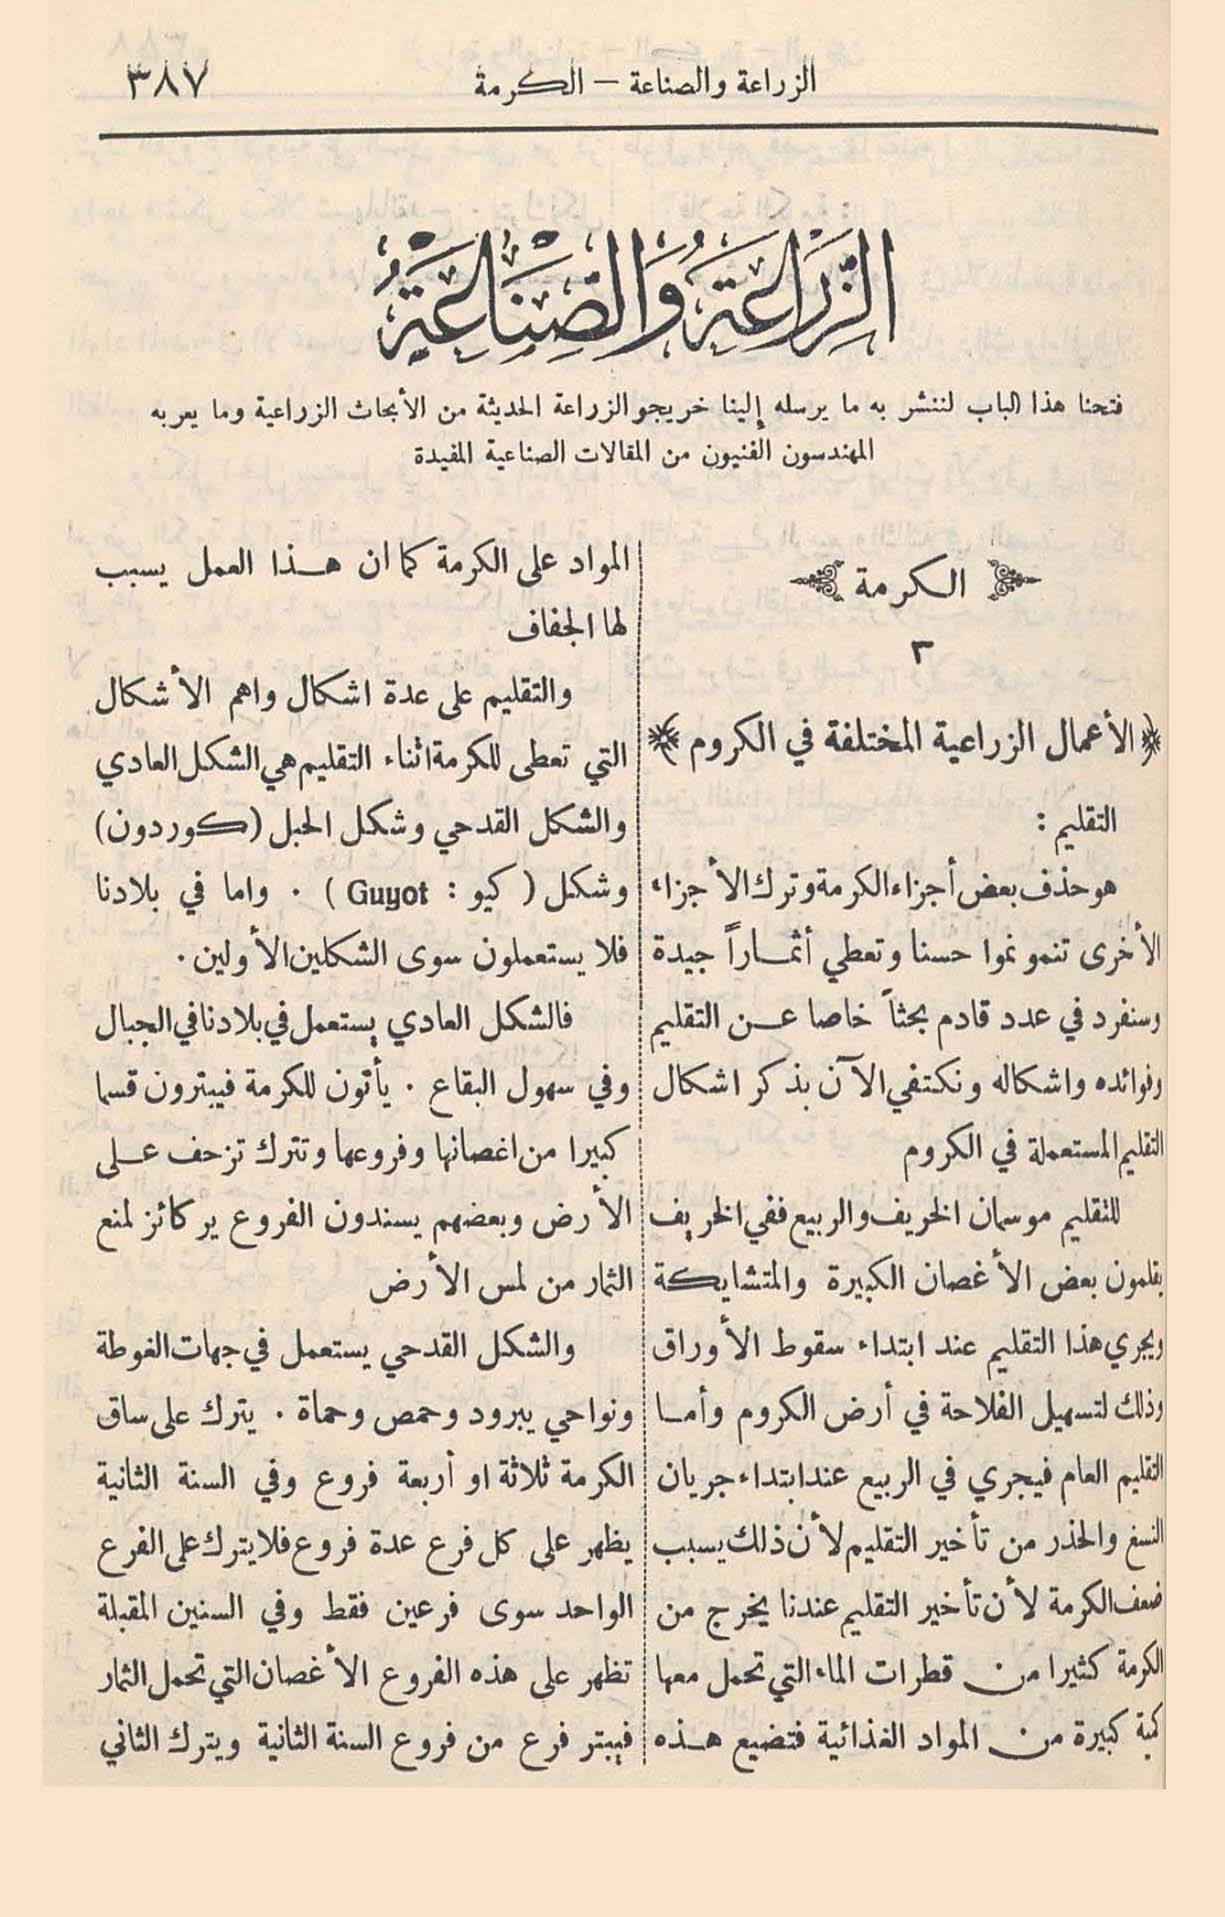 الزراعة والصناعة — الكرمة
٣٨٧
الزِّرَاعَةُ وَالصِّنَاعَةُ
فتحنا هذا الباب لننشر به ما يرسله إلينا خريجو الزراعة الحديثة من الأبحاث الزراعية وما يعربه
المهندسون الفنيون من المقالات الصناعية المفيدة
الكرمة
٣
﴿ الأعمال الزراعية المختلفة في الكروم ﴾
التقليم :
هو حذف بعض أجزاء الكرمة وترك الأجزاء
الأخرى تنمو نموا حسنا وتعطي أثماراً جيدة
وسنفرد في عدد قادم بحثاً خاصا عن التقليم
وفوائده واشكاله ونكتفي الآن بذكر اشكال
التقليم المستعملة في الكروم
للتقليم موسمان الخريف والربيع ففي الخريف
يقلمون بعض الأغصان الكبيرة والمتشابكة
ويجري هذا التقليم عند ابتداء سقوط الأوراق
وذلك لتسهيل الفلاحة في أرض الكروم وأما
التقليم العام فيجري في الربيع عند ابتداء جريان
النسغ والحذر من تأخير التقليم لأن ذلك يسبب
ضعف الكرمة لأن تأخير التقليم عندنا يخرج من
الكرمة كثيرا من قطرات الماء التي تحمل معها
كمية كبيرة من المواد الغذائية فتضيع هذه
المواد على الكرمة كما ان هذا العمل يسبب
لها الجفاف
والتقليم على عدة اشكال واهم الأشكال
التي تعطى للكرمة اثناء التقليم هي الشكل العادي
والشكل القدحي وشكل الحبل (كوردون)
وشكل ( كيو : Guyot ) . واما في بلادنا
فلا يستعملون سوى الشكلين الأولين .
فالشكل العادي يستعمل في بلادنا في الجبال
وفي سهول البقاع . يأتون للكرمة فيبترون قسما
كبيرا من اغصانها وفروعها وتترك تزحف على
الأرض وبعضهم يسندون الفروع بركائز لمنع
الثمار من لمس الأرض
والشكل القدحي يستعمل في جهات الغوطة
ونواحي يبرود وحمص وحماة . يترك على ساق
الكرمة ثلاثة او أربعة فروع وفي السنة الثانية
يظهر على كل فرع عدة فروع فلا يترك على الفرع
الواحد سوى فرعين فقط وفي السنين المقبلة
تظهر على هذه الفروع الأغصان التي تحمل الثمار
فيبتر فرع من فروع السنة الثانية ويترك الثاني